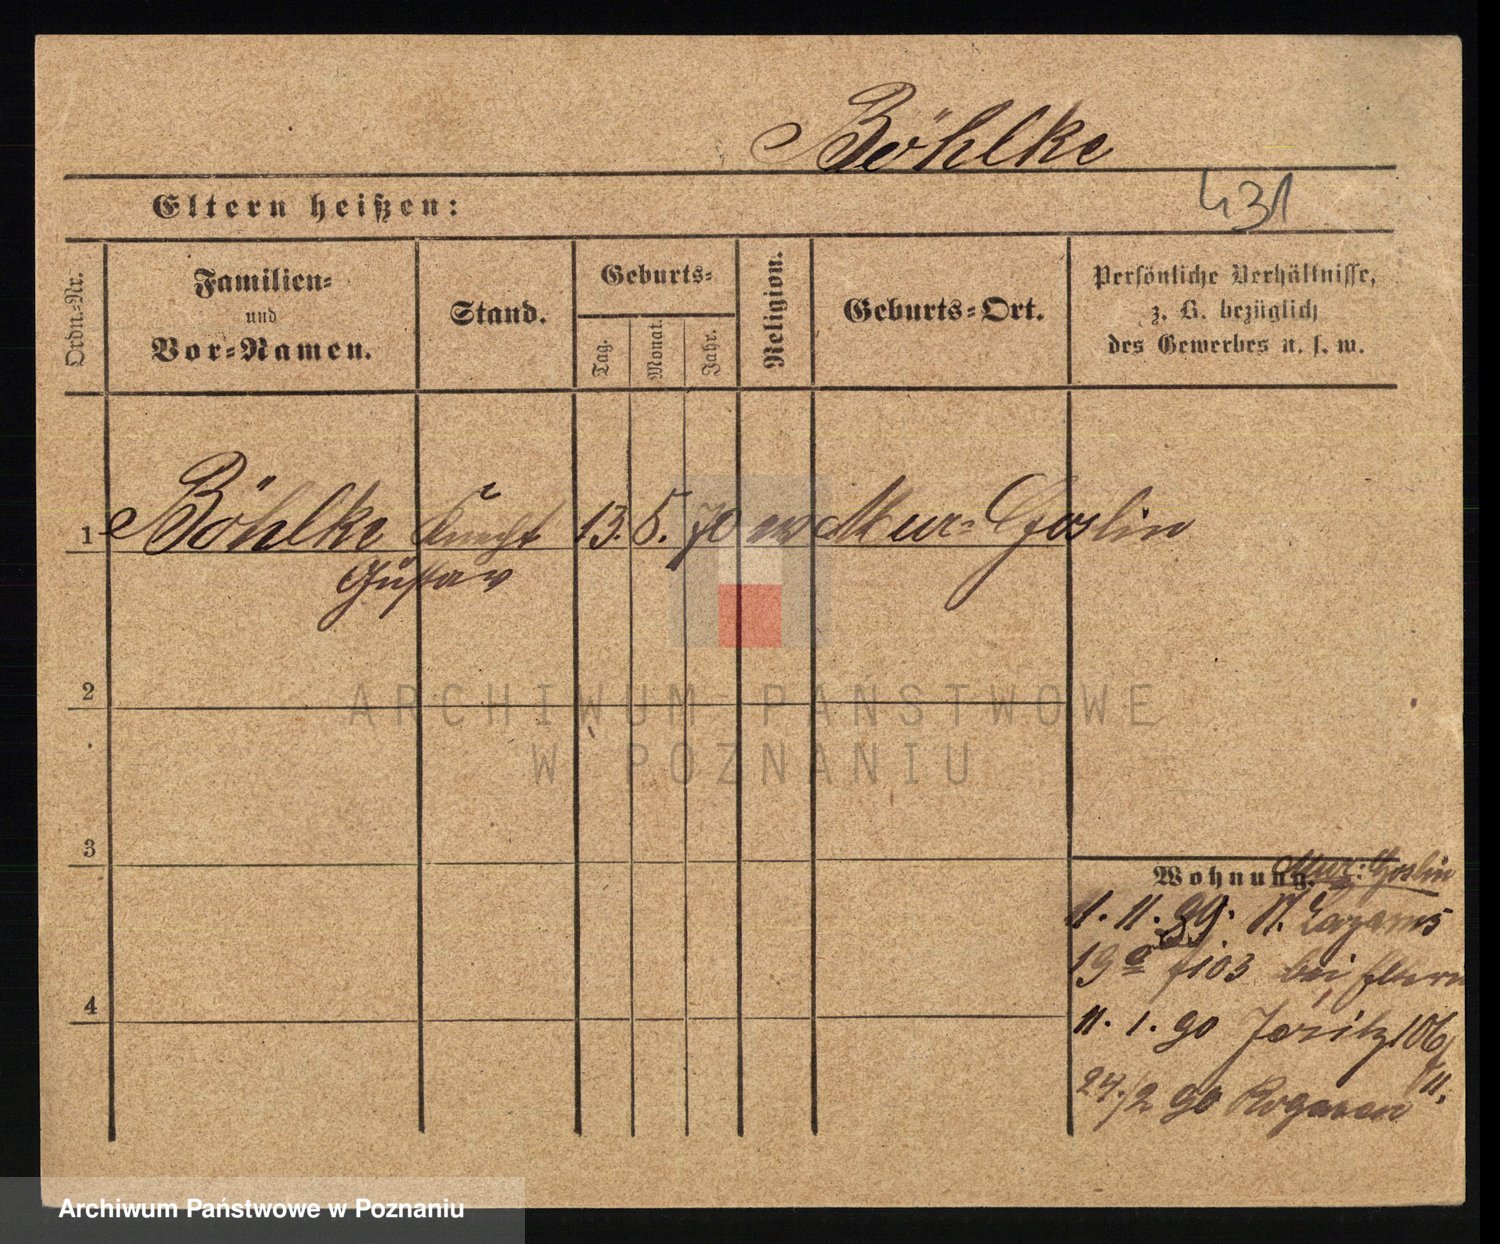 Böhlke
431
Eltern heißen:
Ordn.-Nr.
Familien-
und
Vor-Namen.
Stand.
Geburts-
Tag.
Monat.
Jahr.
Religion.
Geburts-Ort.
Persönliche Verhältnisse,
z. B. bezüglich
des Gewerbes u. s. w.
1 Böhlke Knecht 13. 5. 70 ev Mur-Goslin
Gustav
2
3
4
Wohnung. Mur: Goslin
1. 11. 89. St. Lazarus
19a bei Eltern
11. 1. 90 Jersitz 106
II.
24./2 90 Rogasen
ARCHIWUM PAŃSTWOWE
W POZNANIU
Archiwum Państwowe w Poznaniu